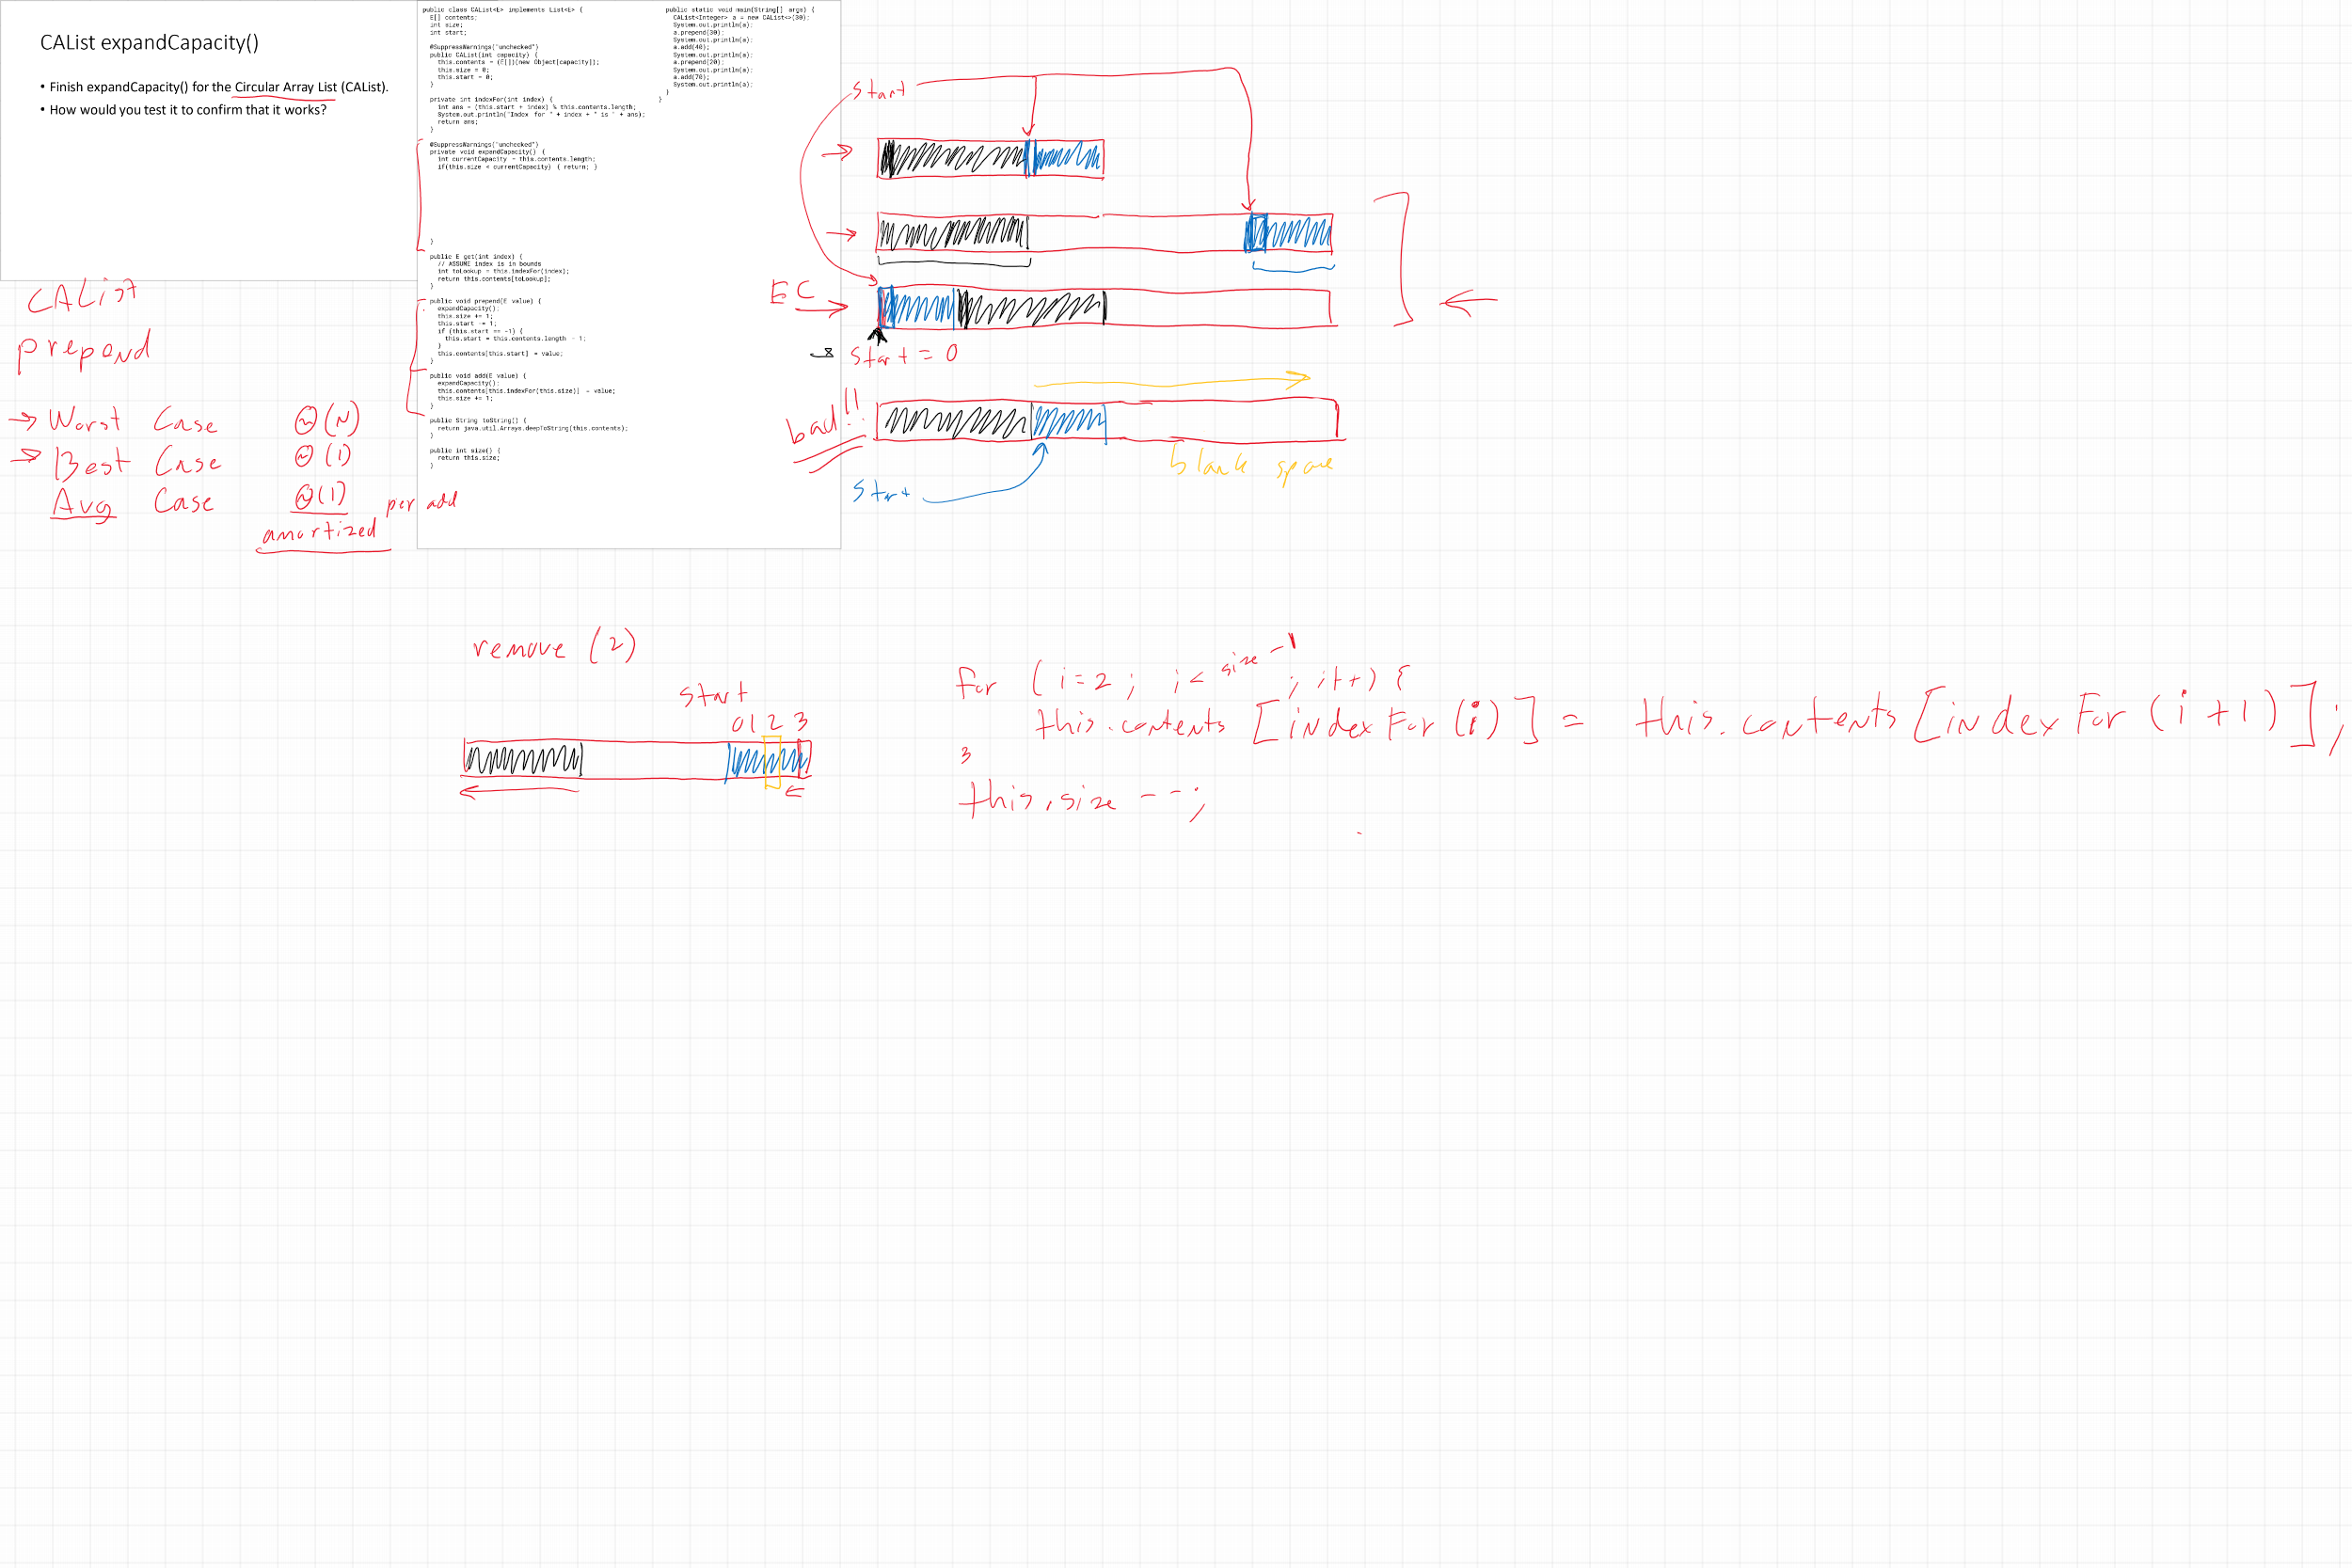 CAList expandCapacity()
• Finish expandCapacity() for the Circular Array List (CAList).
• How would you test it to confirm that it works?
public class CAList<E> implements List<E> {
E[] contents;
int size;
int start;
@SuppressWarnings("unchecked")
public CAList(int capacity) {
this.contents = (E[])(new Object[capacity]);
this.size = 0;
this.start = 0;
}
private int indexFor(int index) {
int ans = (this.start + index) % this.contents.length;
System.out.println("Index for " + index + " is " + ans);
return ans;
}
@SuppressWarnings("unchecked")
private void expandCapacity() {
int currentCapacity = this.contents.length;
if(this.size < currentCapacity) { return; }
}
public E get(int index) {
// ASSUME index is in bounds
int toLookup = this.indexFor(index);
return this.contents[toLookup];
}
public void prepend(E value) {
expandCapacity();
this.size += 1;
this.start -= 1;
if (this.start == -1) {
this.start = this.contents.length - 1;
}
this.contents[this.start] = value;
}
public void add(E value) {
expandCapacity();
this.contents[this.indexFor(this.size)] = value;
this.size += 1;
}
public String toString() {
return java.util.Arrays.deepToString(this.contents);
}
public int size() {
return this.size;
}
public static void main(String[] args) {
CAList<Integer> a = new CAList<>(30);
System.out.println(a);
a.prepend(30);
System.out.println(a);
a.add(40);
System.out.println(a);
a.prepend(20);
System.out.println(a);
a.add(70);
System.out.println(a);
}
}
start
EC
start = 0
bad!!
blank space
start
CAList
prepend
→ Worst Case Θ(N)
→ Best Case Θ(1)
Avg Case Θ(1) per add
amortized
remove (2)
start
0 1 2 3
for (i=2; i< size -1; i++) {
this.contents [indexFor(i)] = this.contents [indexFor(i+1)];
}
this.size --;